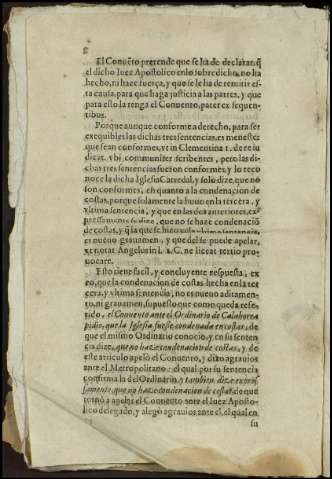 8
El Conuẽto pretende que se ha de declarar, q̃
el dicho Iuez Apostolico en lo sobredicho, no ha
hecho, ni haze fuerça, y que se le ha de remitir es-
ta causa, para que haga justicia a las partes, y que
para esto la tenga el Conuento, patet ex sequen-
tibus.
Porque aunque conforme a derecho, para ser
exequibles las dichas tres sentencias, es menester
que sean conformes, vt in Clementina 1. de re iu
dicat. vbi communiter scribentes, pero las di-
chas tres sentencias fueron conformes, y lo reco
noce la dicha Iglesia Catredal, y solo dize, que no
son conformes, en quanto a la condenacion de
costas, porque solamente la huuo en la tercera, y
vltima sentencia, y que en las dos anteriores, ex
pressamente se dize, que no se haze condenaciõ
de costas, y q̃ la que se hizo
es nueuo grauamen, y que desse puede apelar,
ex notat. Angelus in l. 1. C. ne liceat tertio pro-
uocare.
Esto tiene facil, y concluyente respuesta,
ro, que la condenacion de costas hecha en la ter
cera, y vltima sentencia, no es nueuo aditamen-
to, ni grauamen, supuesto que como queda refe-
rido, el Conuento ante el Ordinario de Calahorra
pidio, que la Iglesia fuesse condenada en costas, de
que el mismo Ordinario conocio, y en su senten
cia dize, que no haze condenacion de costas, y de
este articulo apelò el Conuento, y dixo agrauios
ante el Metropolitano: el qual por su sentencia
confirma la del Ordinario, y tambien dize expres-
samente, que no haze condenacion de costas: de que
tornò a apelar el Conuento ante el Iuez Aposto-
lico delegado, y alegò agrauios ante el, el qual en
su